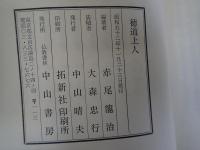 徳道上人
昭和五十二年十一月二十三日発行
編著者 赤尾龍治
発行者 大森忠行
発行者 中山晴夫
印刷所 拓新社印刷所
発行所 仏教書林 中山書房